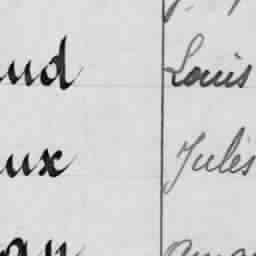 ud Louis
ux Jules
an